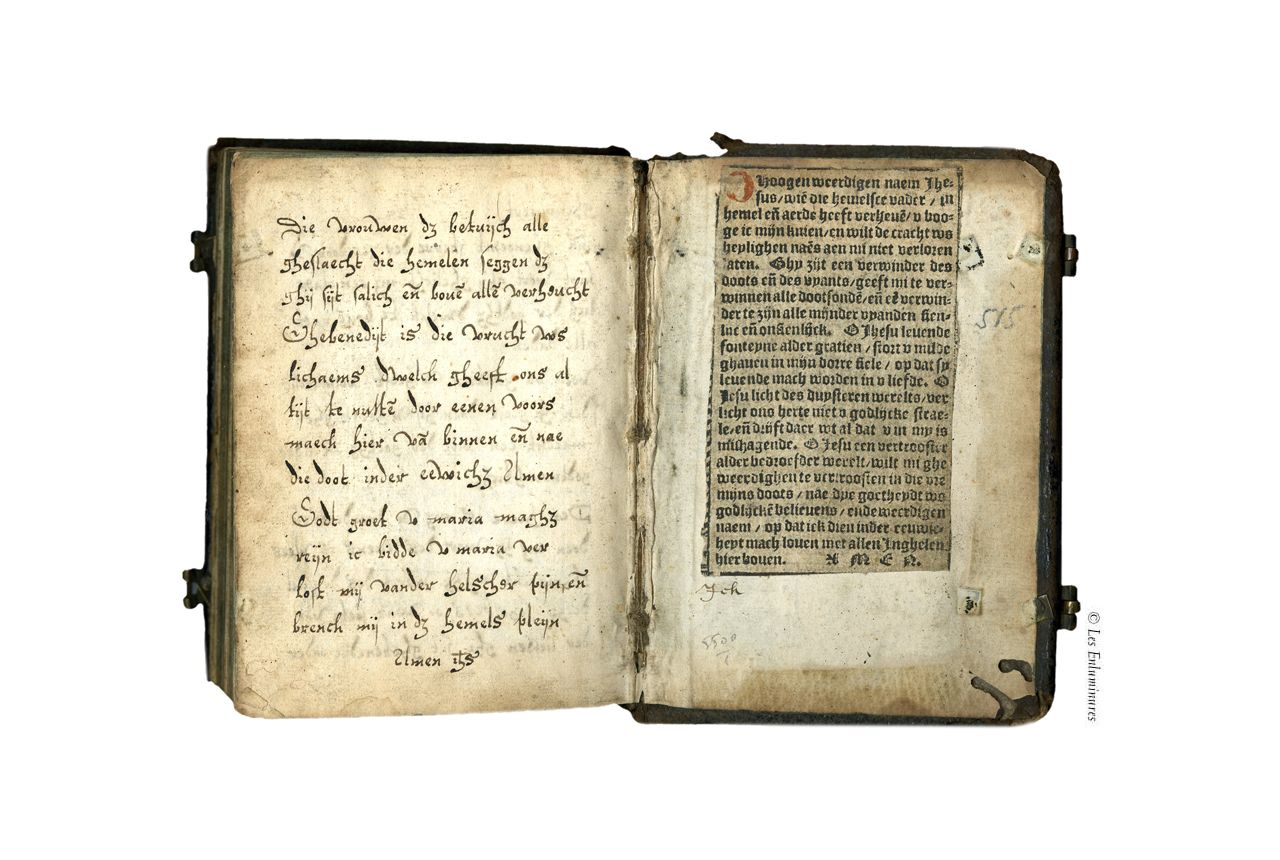 Die vrouwen dz betuijch alle
gheslaecht die hemelen seggen dz
ghij sijt salich eñ bouē allē verheucht
Ghebenedijt is die vrucht ws
lichaems dwelch gheeft ons al
tijt te nuttē door eenen voors
maech hier vā binnen eñ nae
die doot inder eewichz Amen
Godt groet v maria maghz
reijn ic bidde v maria ver
lost mij vander helscher pijn, eñ
brench mij in dz hemels pleijn
Amen ihs
O Hoogen weerdigen naem Jhe-
sus/wiē die hemelsce vader / in
hemel eñ aerde heeft verheuē/ v boo-
ge ic mijn knien/en wilt de cracht ws
heylighen naēs aen mi niet verloren
laten. Ghy zijt een verwinder des
doots eñ des vyants/geeft mi te ver-
winnen alle dootsondē/eñ eē verwin-
der te zijn alle mijnder vyanden sien-
lijc eñ onsienlijck. O Jhesu leuende
fonteyne alder gratien / stort v milde
ghauen in mijn dorre siele / op dat sy
leuende mach worden in v liefde. O
Jesu licht des duysteren werelts/ver
licht ons herte met v godlijcke strae-
le/eñ drijft daer wt al dat v in my is
mishagende. O Jesu een vertrooster
alder bedroefder werelt/wilt mi ghe
weerdighen te vertroosten in die vre
mijns doots / nae dye goetheydt ws
godlijckē believens / ende weerdigen
naem / op dat ick dien inder eeuwic-
heyt mach louen met allen Inghelen
hier bouen. A M E N.
515
Jch
5500
© Les Enluminures